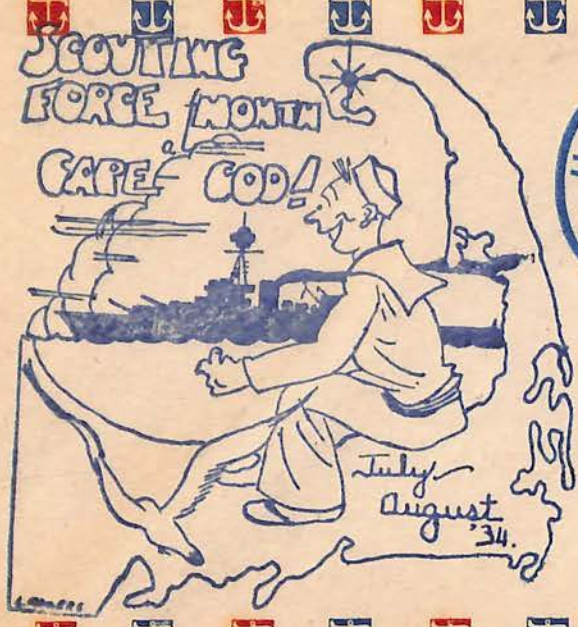 SCOUTING
FORCE MONTH
CAPE COD!
July
August
'34.